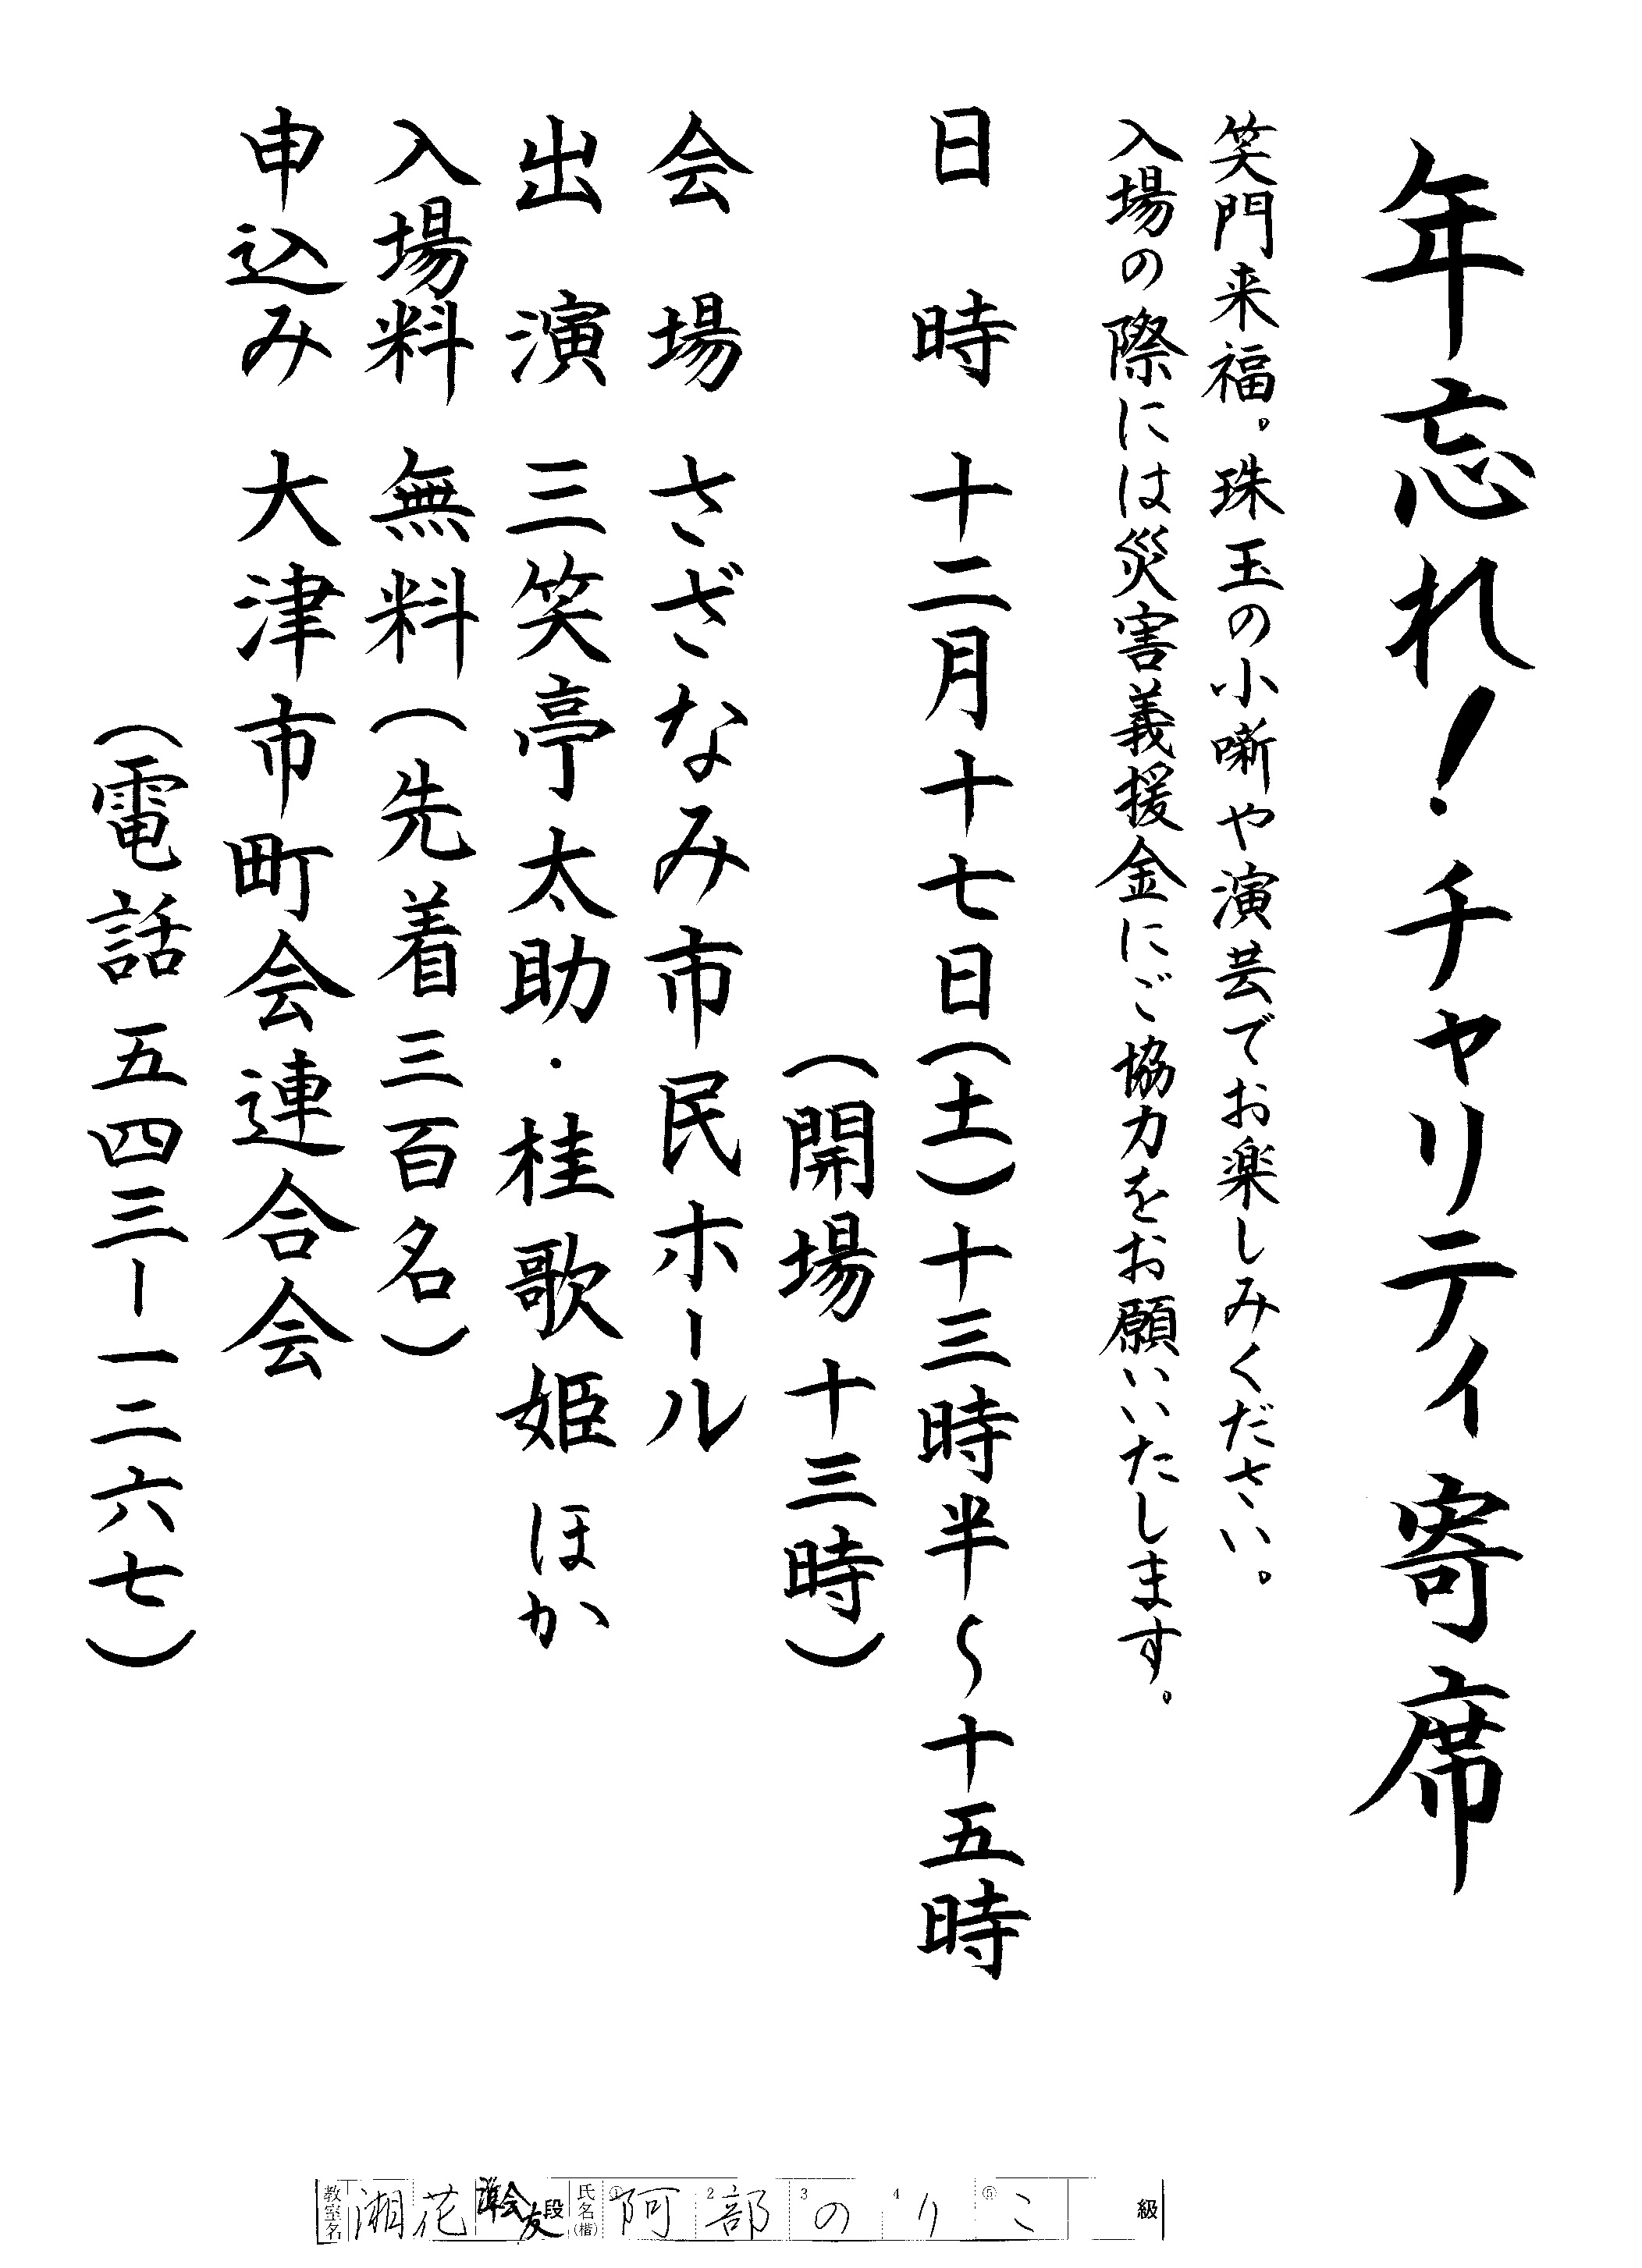 年忘れ！チャリティ寄席
笑門来福。珠玉の小噺や演芸でお楽しみください。
入場の際には災害義援金にご協力をお願いいたします。
日時 十二月十七日（土）十三時半～十五時
（開場 十三時）
会場 さざなみ市民ホール
出演 三笑亭太助・桂歌姫 ほか
入場料 無料（先着三百名）
申込み 大津市町会連合会
（電話 五四三ー一二六七）
教室名 湘花 準会友 段 氏名（楷） ① 阿 2 部 3 の 4 り ⑤ こ 級